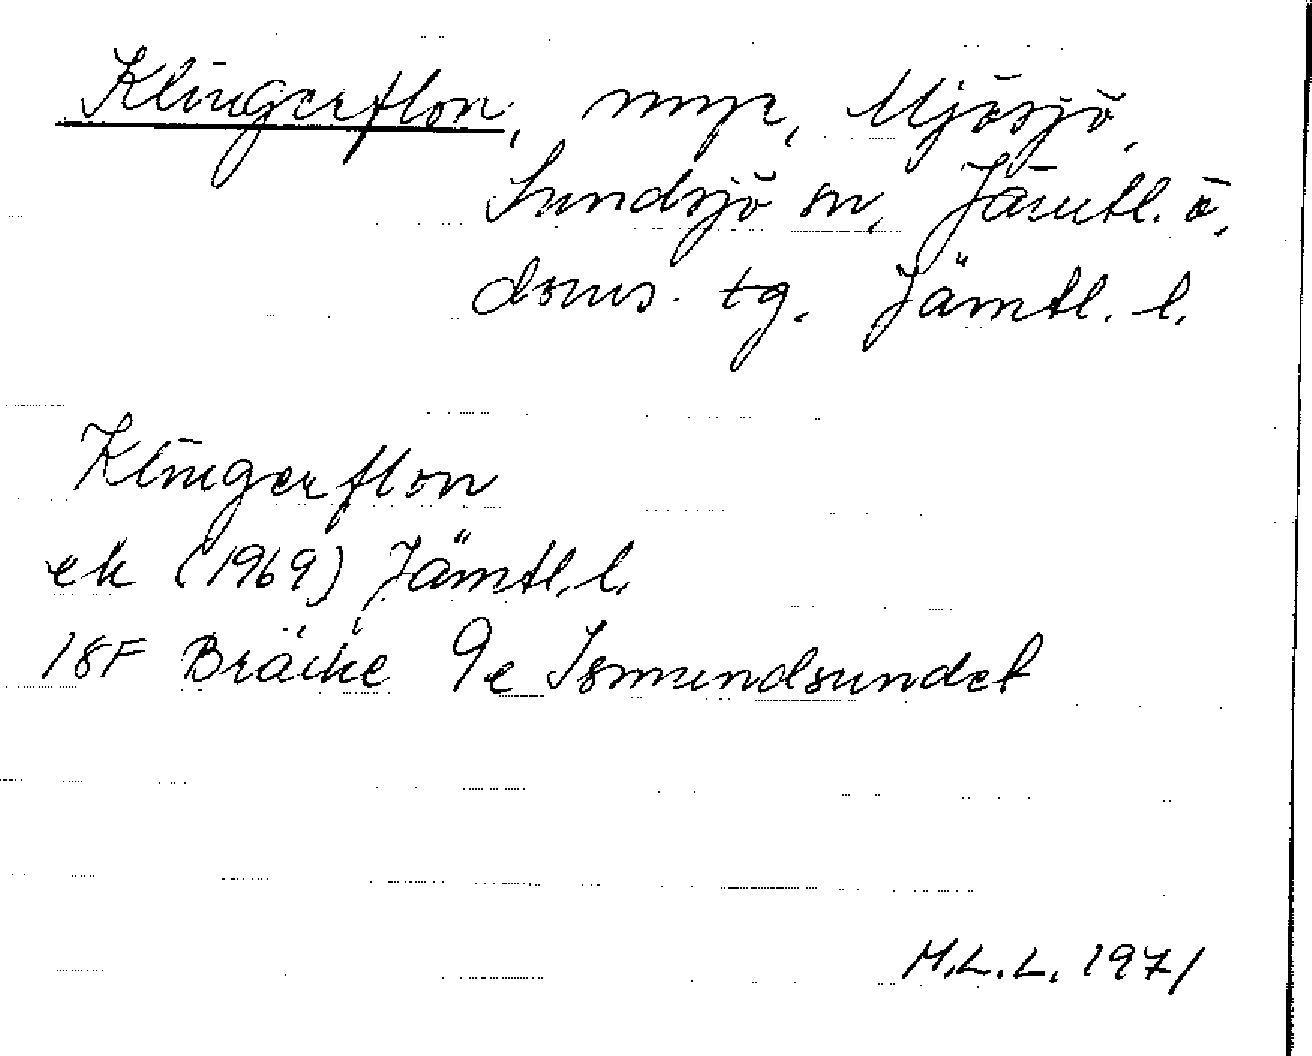 Klingerflon, myr, Mjösjö,
Sundsjö sn, Jämtl. ö,
doms. tg. Jämtl. l.
Klingerflon
ek (1969) Jämtl.l.
18F Bräcke 9e Ismundsundet
M.L.L. 1971